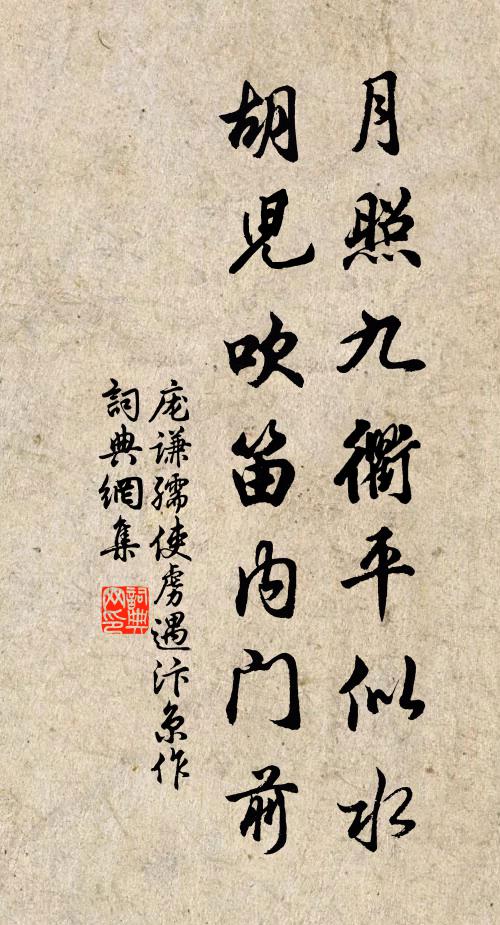 月照九衢平似水
胡児吹笛内门前
庞谦孺使虏過汴京作
詞典網集
詞典网印